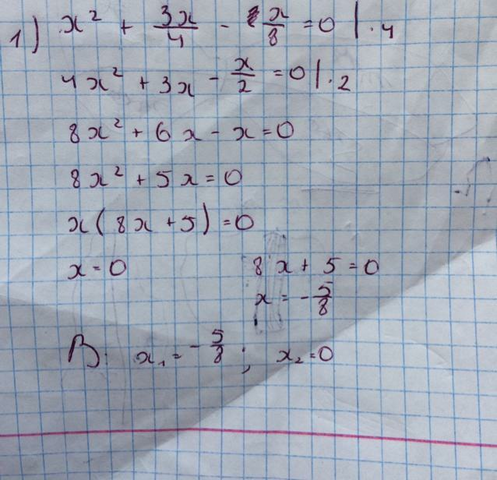 1) x² + 3x/4 - x/8 = 0 | · 4
4x² + 3x - x/2 = 0 | · 2
8x² + 6x - x = 0
8x² + 5x = 0
x(8x + 5) = 0
x = 0    8x + 5 = 0
x = -5/8
В: x₁ = -5/8 ; x₂ = 0